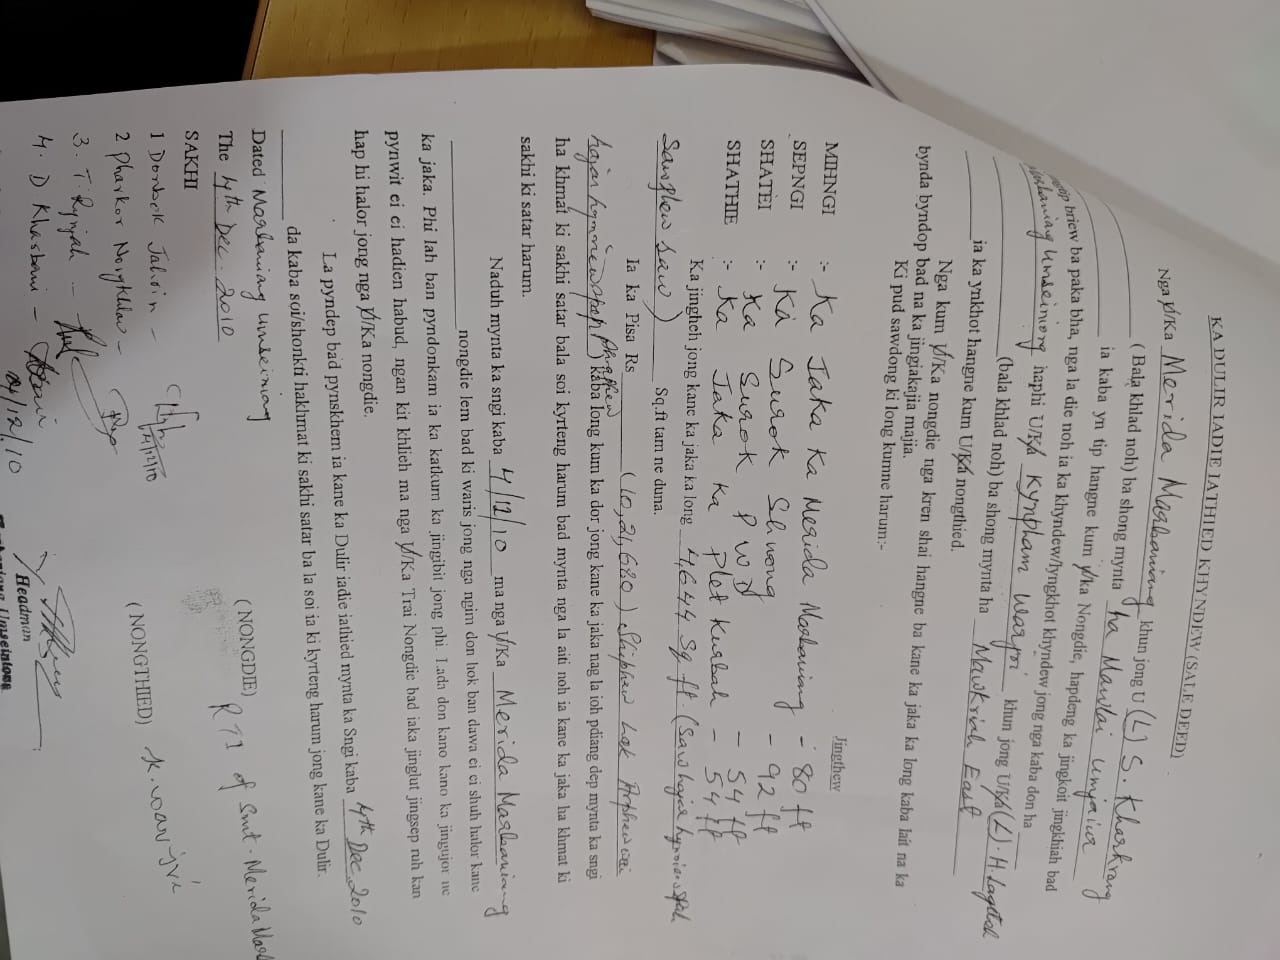 KA DULIR IADIE IATHIED KHYNDEW (SALE DEED)
Nga U/Ka Merida Marbaniang khun jong U (L) S. Kharkrang
( Bala khlad noh) ba shong mynta ha Mawlai Umjaiur
ia kaba yn tip hangne kum U/ka Nongdie, hapdeng ka jingkoit jingkhiah bad
briew ba paka bha, nga la die noh ia ka khyndew/lyngkhot khyndew jong nga kaba don ha
Marbaniang Umseiniong haphi U/Ka Kynpham Warjri khun jong U/Ka (L). H.
(bala khlad noh) ba shong mynta ha Mawkriah East
ia ka ynkhot hangne kum U/Ka nongthied.
Nga kum U/Ka nongdie nga kren shai hangne ba kane ka jaka ka long kaba lait na ka
bynda byndop bad na ka jingiakajia majia.
Ki pud sawdong ki long kumne harum:-
Jingthew
MIHNGI :- Ka Jaka Ka Merida Marbaniang - 80 ft
SEPNGI :- Ka Surok Shnong - 92 ft
SHATEI :- Ka Surok PWD - 54 ft
SHATHIE :- Ka Jaka ka Plot Kurbah - 54 ft
Ka jingheh jong kane ka jaka ka long 4,644 Sq. ft (Saw hajar hynriewspah
Sawphew saw) Sq.ft tam ne duna.
Ia ka Pisa Rs (10,21,680) Shiphew Lak Arphewwei
hajar hynriewspah phraphew) kaba long kum ka dor jong kane ka jaka nag la ioh pdiang dep mynta ka sngi
ha khmat ki sakhi satar bala soi kyrteng harum bad mynta nga la aiti noh ia kane ka jaka ha khmat ki
sakhi ki satar harum.
Naduh mynta ka sngi kaba 4/12/10 ma nga U/Ka Merida Marbaniang
nongdie lem bad ki waris jong nga ngim don hok ban dawa ei ei shuh halor kane
ka jaka. Phi lah ban pyndonkam ia ka katkum ka jingibit jong phi. Lada don kano kano ka jingujor ne
pynwit ei ei hadien habud, ngan kit khlieh ma nga U/Ka Trai Nongdie bad iaka jinglut jingsep ruh kan
hap hi halor jong nga U/Ka nongdie.
La pyndep bad pynskhem ia kane ka Dulir iadie iathied mynta ka Sngi kaba 4th Dec. 2010
da kaba soi/shonkti hakhmat ki sakhi satar ba la soi ia ki kyrteng harum jong kane ka Dulir.
Dated Marbaniang Umseiniong
The 4th Dec. 2010
(NONGDIE) RTI of Smt. Merida
SAKHI
1 Donbok Jahrin -
4/12/10
(NONGTHIED) K. Warjri
2 Pharkor Nongkhlaw -
3. T. Rynjah -
4. D Kharbani -
04/12/10
Headman